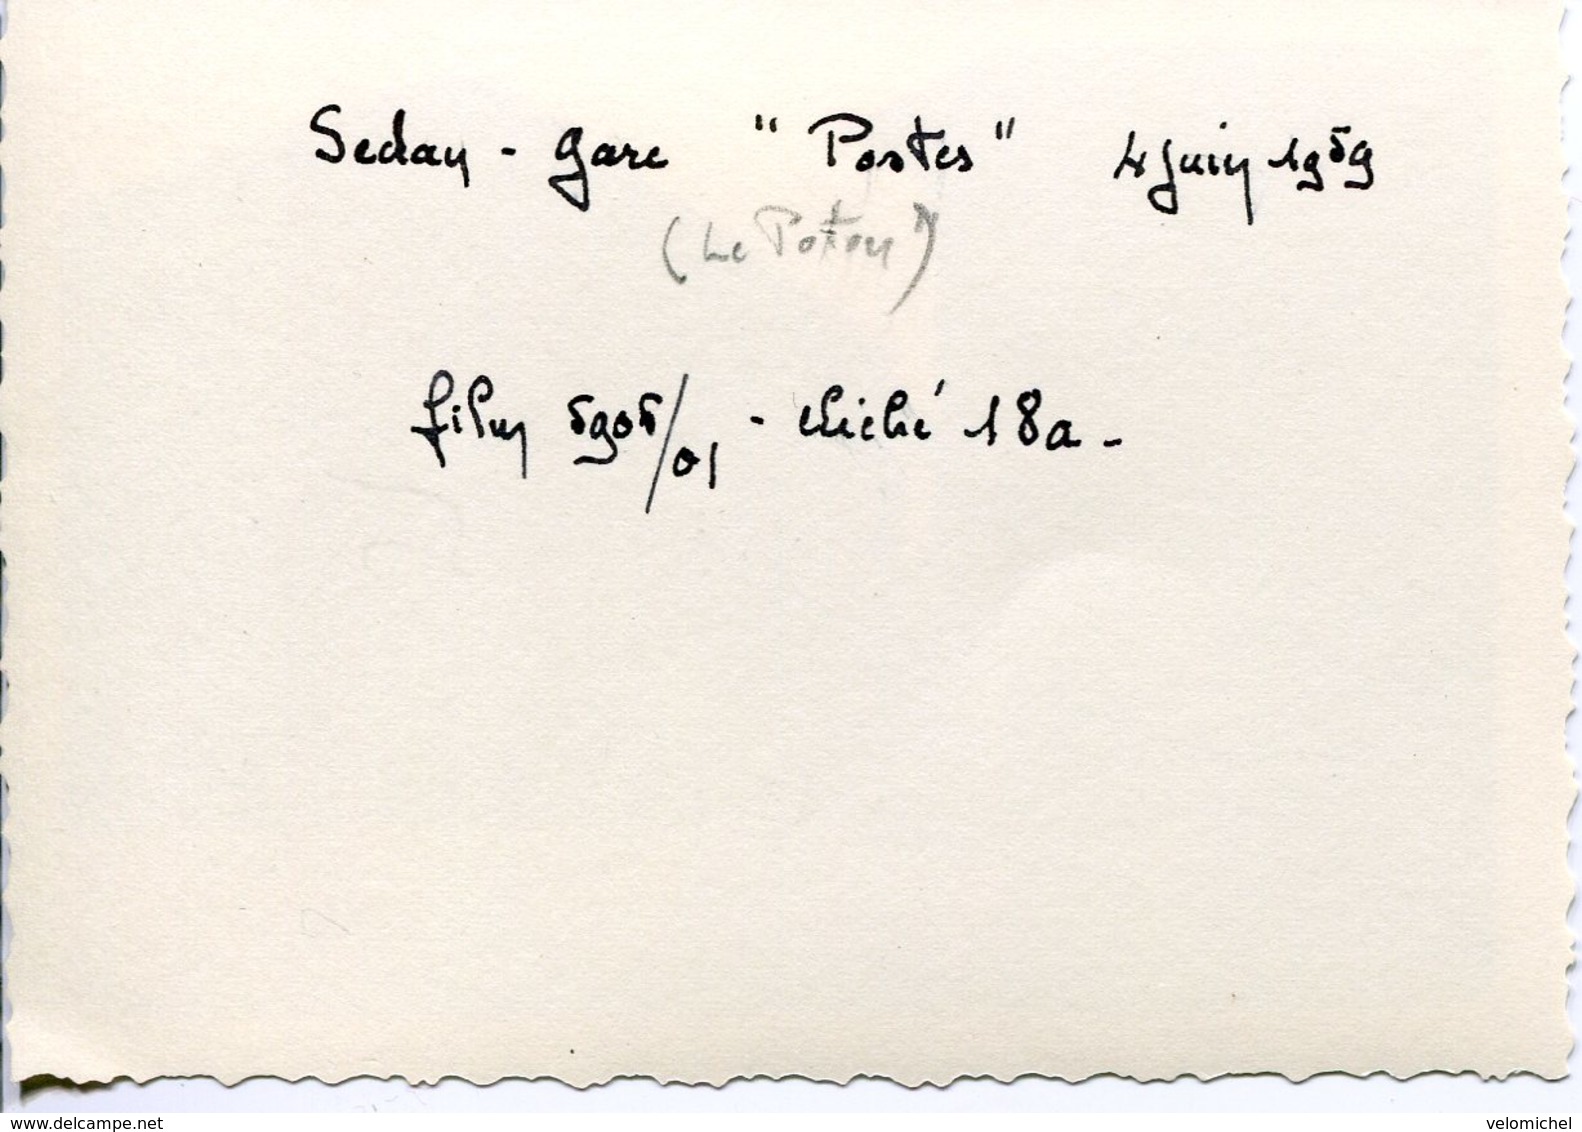 Sedan - gare " Postes " 4 juin 1959
(Le Poton")
film 5905/01 - cliché 18a -
www.delcampe.net velomichel